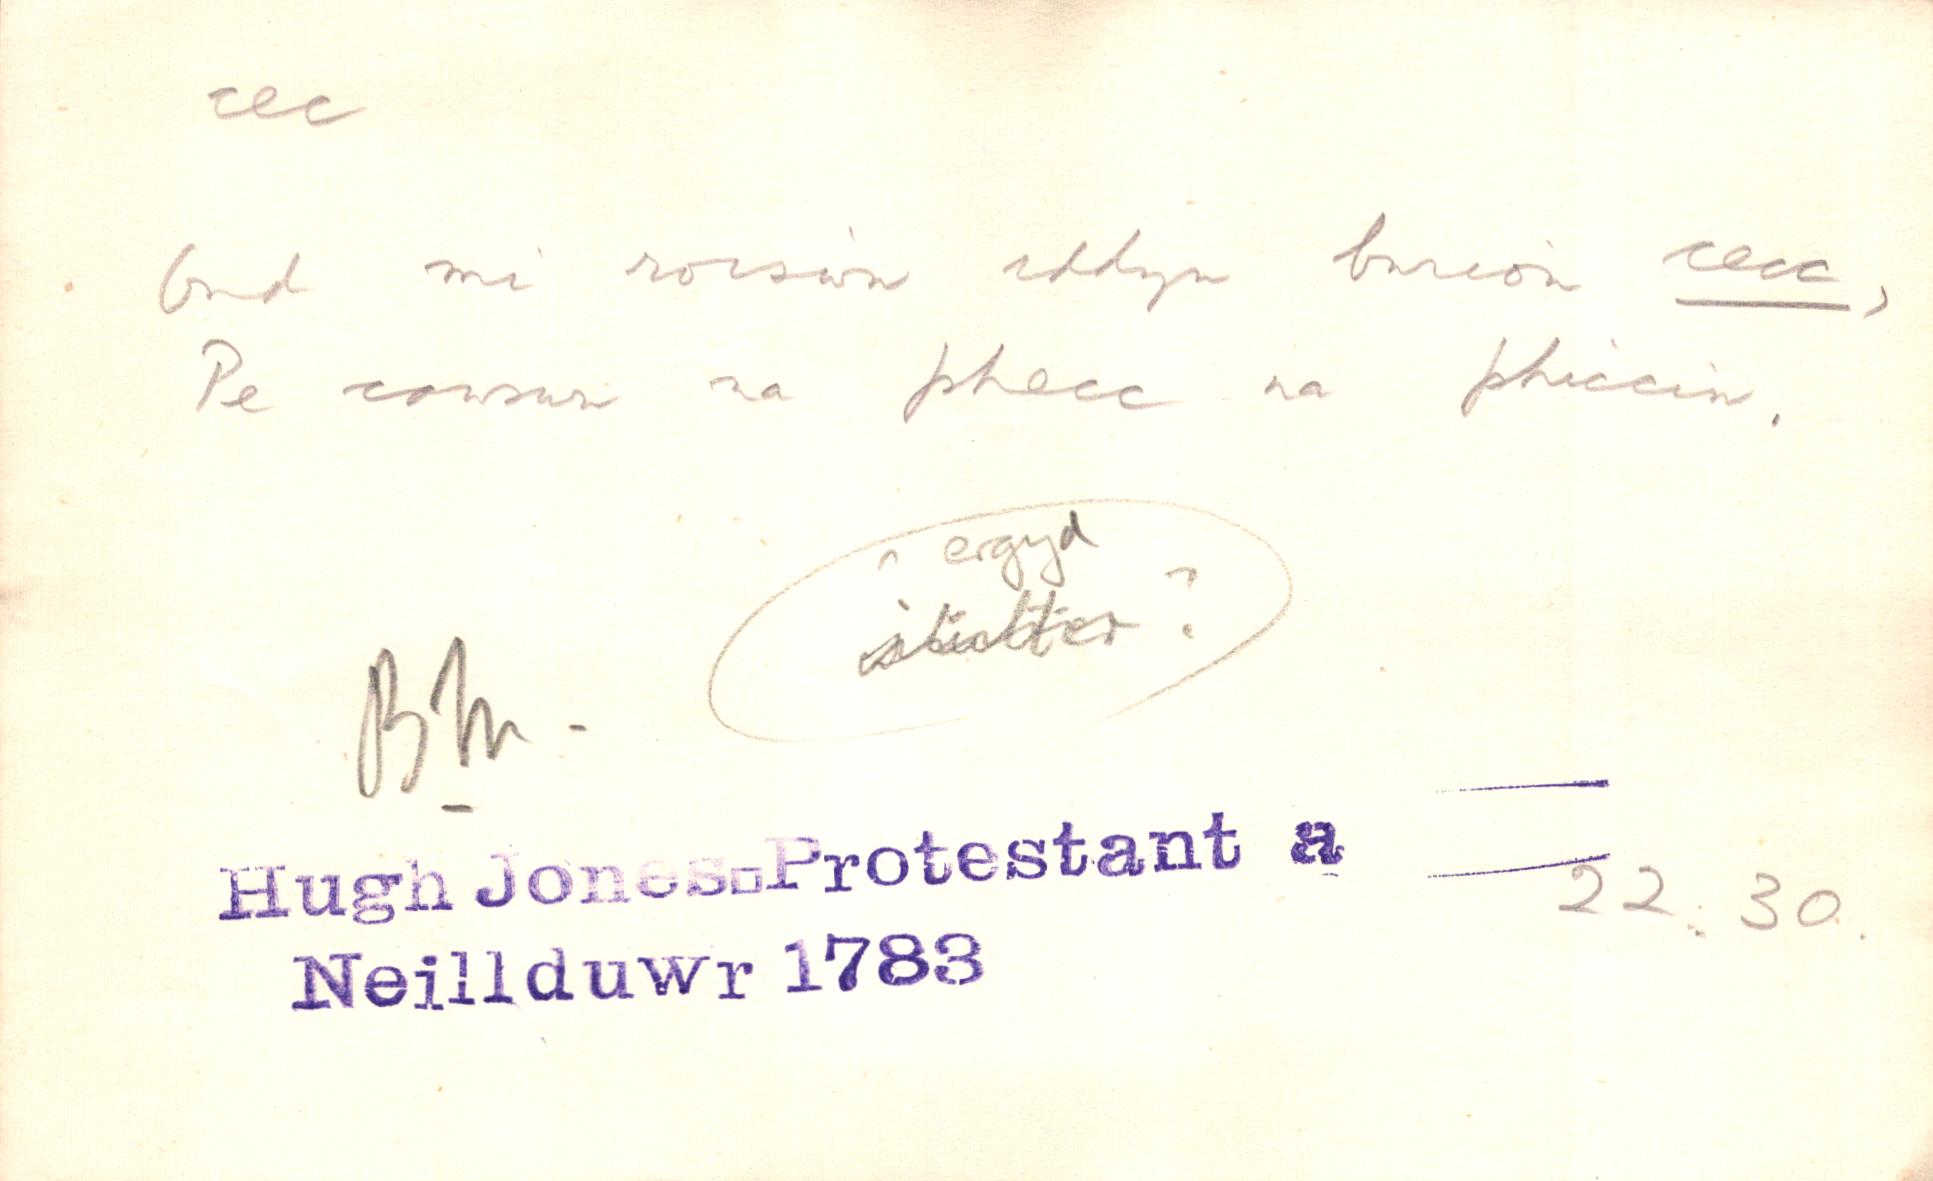 cec
Ond mi roeswn iddyn burion cecc,
Pe cawswn na phecc na phiccin.
ergyd
?
BM -
Hugh Jones-Protestant a
Neillduwr 1783
22. 30.